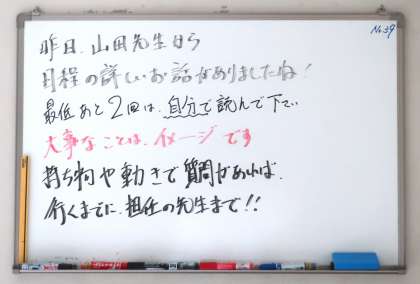 No.39
昨日、山田先生から
日程の詳しいお話がありましたね!
最低あと2回は、自分で読んで下さい
大事なことは、イメージです
持ち物や動きで質問があれば、
行くまでに、担任の先生まで!!